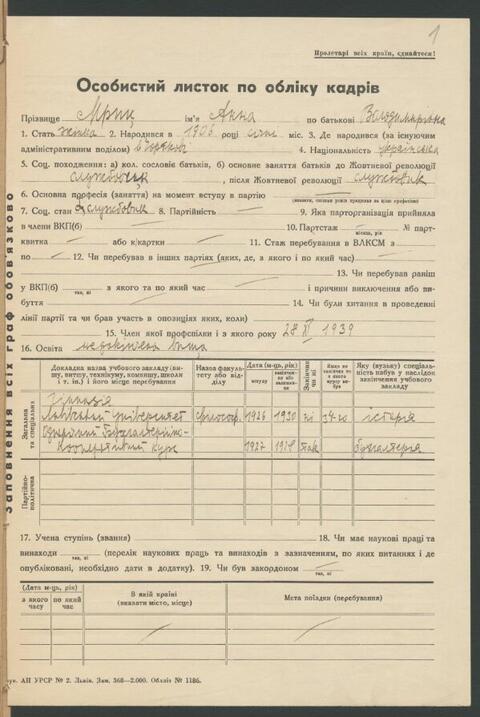 1
Пролетарі всіх країн, єднайтеся!
Особистий листок по обліку кадрів
Прізвище Мриц ім'я Анна по батькові Володимирівна
1. Стать жінка 2. Народився в 1906 році січні міс. 3. Де народився (за існуючим
адміністративним поділом) 4. Національність українська
5. Соц. походження: а) кол. сословіє батьків, б) основне заняття батьків до Жовтневої революції
службовець, після Жовтневої революції службовик
6. Основна професія (занаття) на момент вступу в партію —
7. Соц. стан службовик 8. Партійність — 9. Яка парторганізація прийняла
в члени ВКП(б) — 10. Партстаж — № парт-
місяць, рік
квитка — або к/картки — 11. Стаж перебування в ВЛКСМ з —
по — 12. Чи перебував в інших партіях (яких, де, з якого і по який час) —
13. Чи перебував раніш
у ВКП(б) — з якого та по який час — і причини виключення або ви-
так, ні
буття — 14. Чи були хитання в проведенні
лінії партії та чи брав участь в опозиціях яких, коли) —
15. Член якої профспілки і з якого року 28 XI 1939
16. Освіта незакінчена вища
Заповнення всіх граф обов'язково
Докладна назва учбового закладу (ви-
шу, витшу, технікуму, комвишу, школи
і т. ін.) і його місце перебування
Назва факуль-
тету або від-
ділу
Дата (м-ць, рік)
вступу
закінчен-
ня або
залишен.
Закінчив
чи ні
Якщо не
закінчив то
з якого
курсу ви-
був
Яку (вузьку) спеціаль-
ність набув у наслідок
закінчення учбового
закладу
Загальна
та спеціальна
Гімназія
Львівський університет філософ. 1926 1930 ні з 4-го історія
Бухгалтерійно-
Кооперативний курс 1927 так бухгалтерія
Партійно-
політична
17. Учена ступінь (звання) — 18. Чи має наукові праці та
винаходи — (перелік наукових праць та винаходів з зазначенням, по яких питаннях і де
так, ні
опубліковані, необхідно дати в додатку). 19. Чи був закордоном —
так, ні
(Дата м-ць, рік)
з якого
часу
по який
час
В якій країні
(вказати місто, місце)
Мета поїздки (перебування)
рук. АП УРСР № 2. Львів. Зам. 368—2.000. Обліт № 1186.